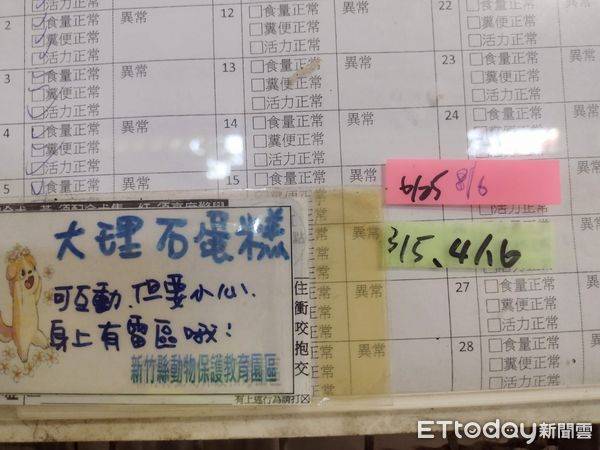 12 □食量正常 異常 22 □食量正常
□糞便正常 □糞便正常
活力正常 □活力正常 □活力正常
3 □食量正常 異常 13 □食量正常 異常 23 □食量正常
□糞便正常 □糞便正常 □糞便正常
□活力正常 □活力正常 □活力正常
4 □食量正常 異常 14 □食量正常 異常 24 □食量正常
□糞便正常 □糞便正常
□活力正常 □活力正常
5 □食量正常 異常 15
6/25 8/6
3/5、4/16
大理石蛋糕
可互動、但要小心、
身上有雷區哦!
新竹縣動物保護教育園區
住衝咬抱交
有上述行為請打☒
異常
異常
異常 27 □食量正常
□糞便正常
□活力正常
異常 28 □食量正常
□糞便正常
□活力正常
ETtoday新聞雲